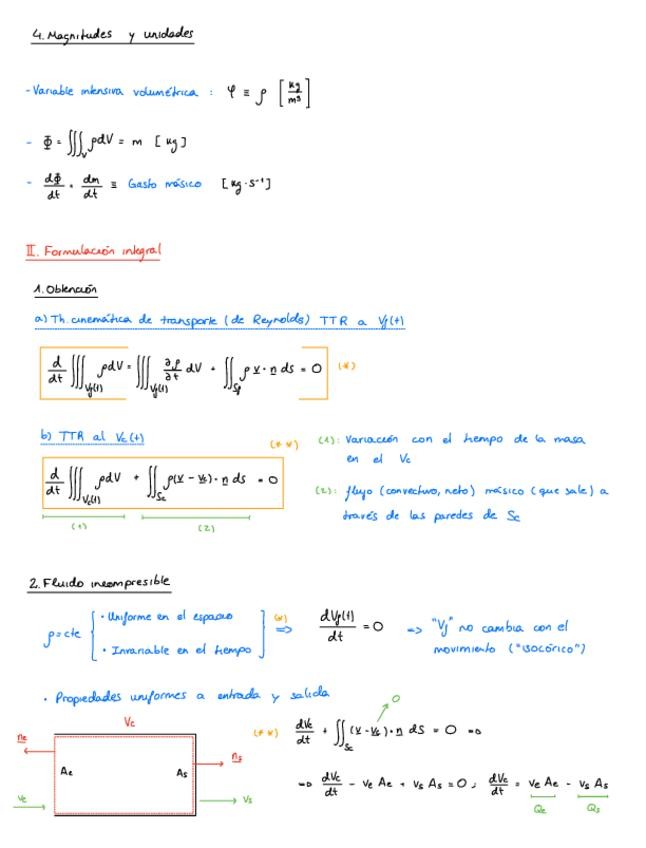 4. Magnitudes y unidades
- Variable intensiva volumétrica : φ ≡ ρ [kg/m³]
- Φ = ∭_V ρdV = m [kg]
- dΦ/dt = dm/dt ≡ Gasto másico [kg·s⁻¹]
II. Formulación integral
1. Obtención
a) Th. cinemática de transporte (de Reynolds) TTR a Vf(t)
d/dt ∭_Vf(t) ρdV = ∭_Vf(t) ∂ρ/∂t dV + ∬_Sf ρ v · n ds = 0 (*)
b) TTR al Vc(t) (**)
d/dt ∭_Vc(t) ρdV + ∬_Sc ρ(v - vc) · n ds = 0
(1) (2)
(1): Variación con el tiempo de la masa
en el Vc
(2): flujo (convectivo, neto) másico (que sale) a
través de las paredes de Sc
2. Fluido incompresible
ρ=cte { · Uniforme en el espacio · Invariable en el tiempo ] (*) => dVf(t)/dt = 0 => "Vf" no cambia con el
movimiento ("isocórico")
· Propiedades uniformes a entrada y salida
Vc
ne
ns
Ae
As
ve
vs
(**) dVc/dt + ∬_Sc (v - vc) · n dS = 0 => 0
=> dVc/dt - ve Ae + vs As = 0 ; dVc/dt = ve Ae - vs As
Qe Qs